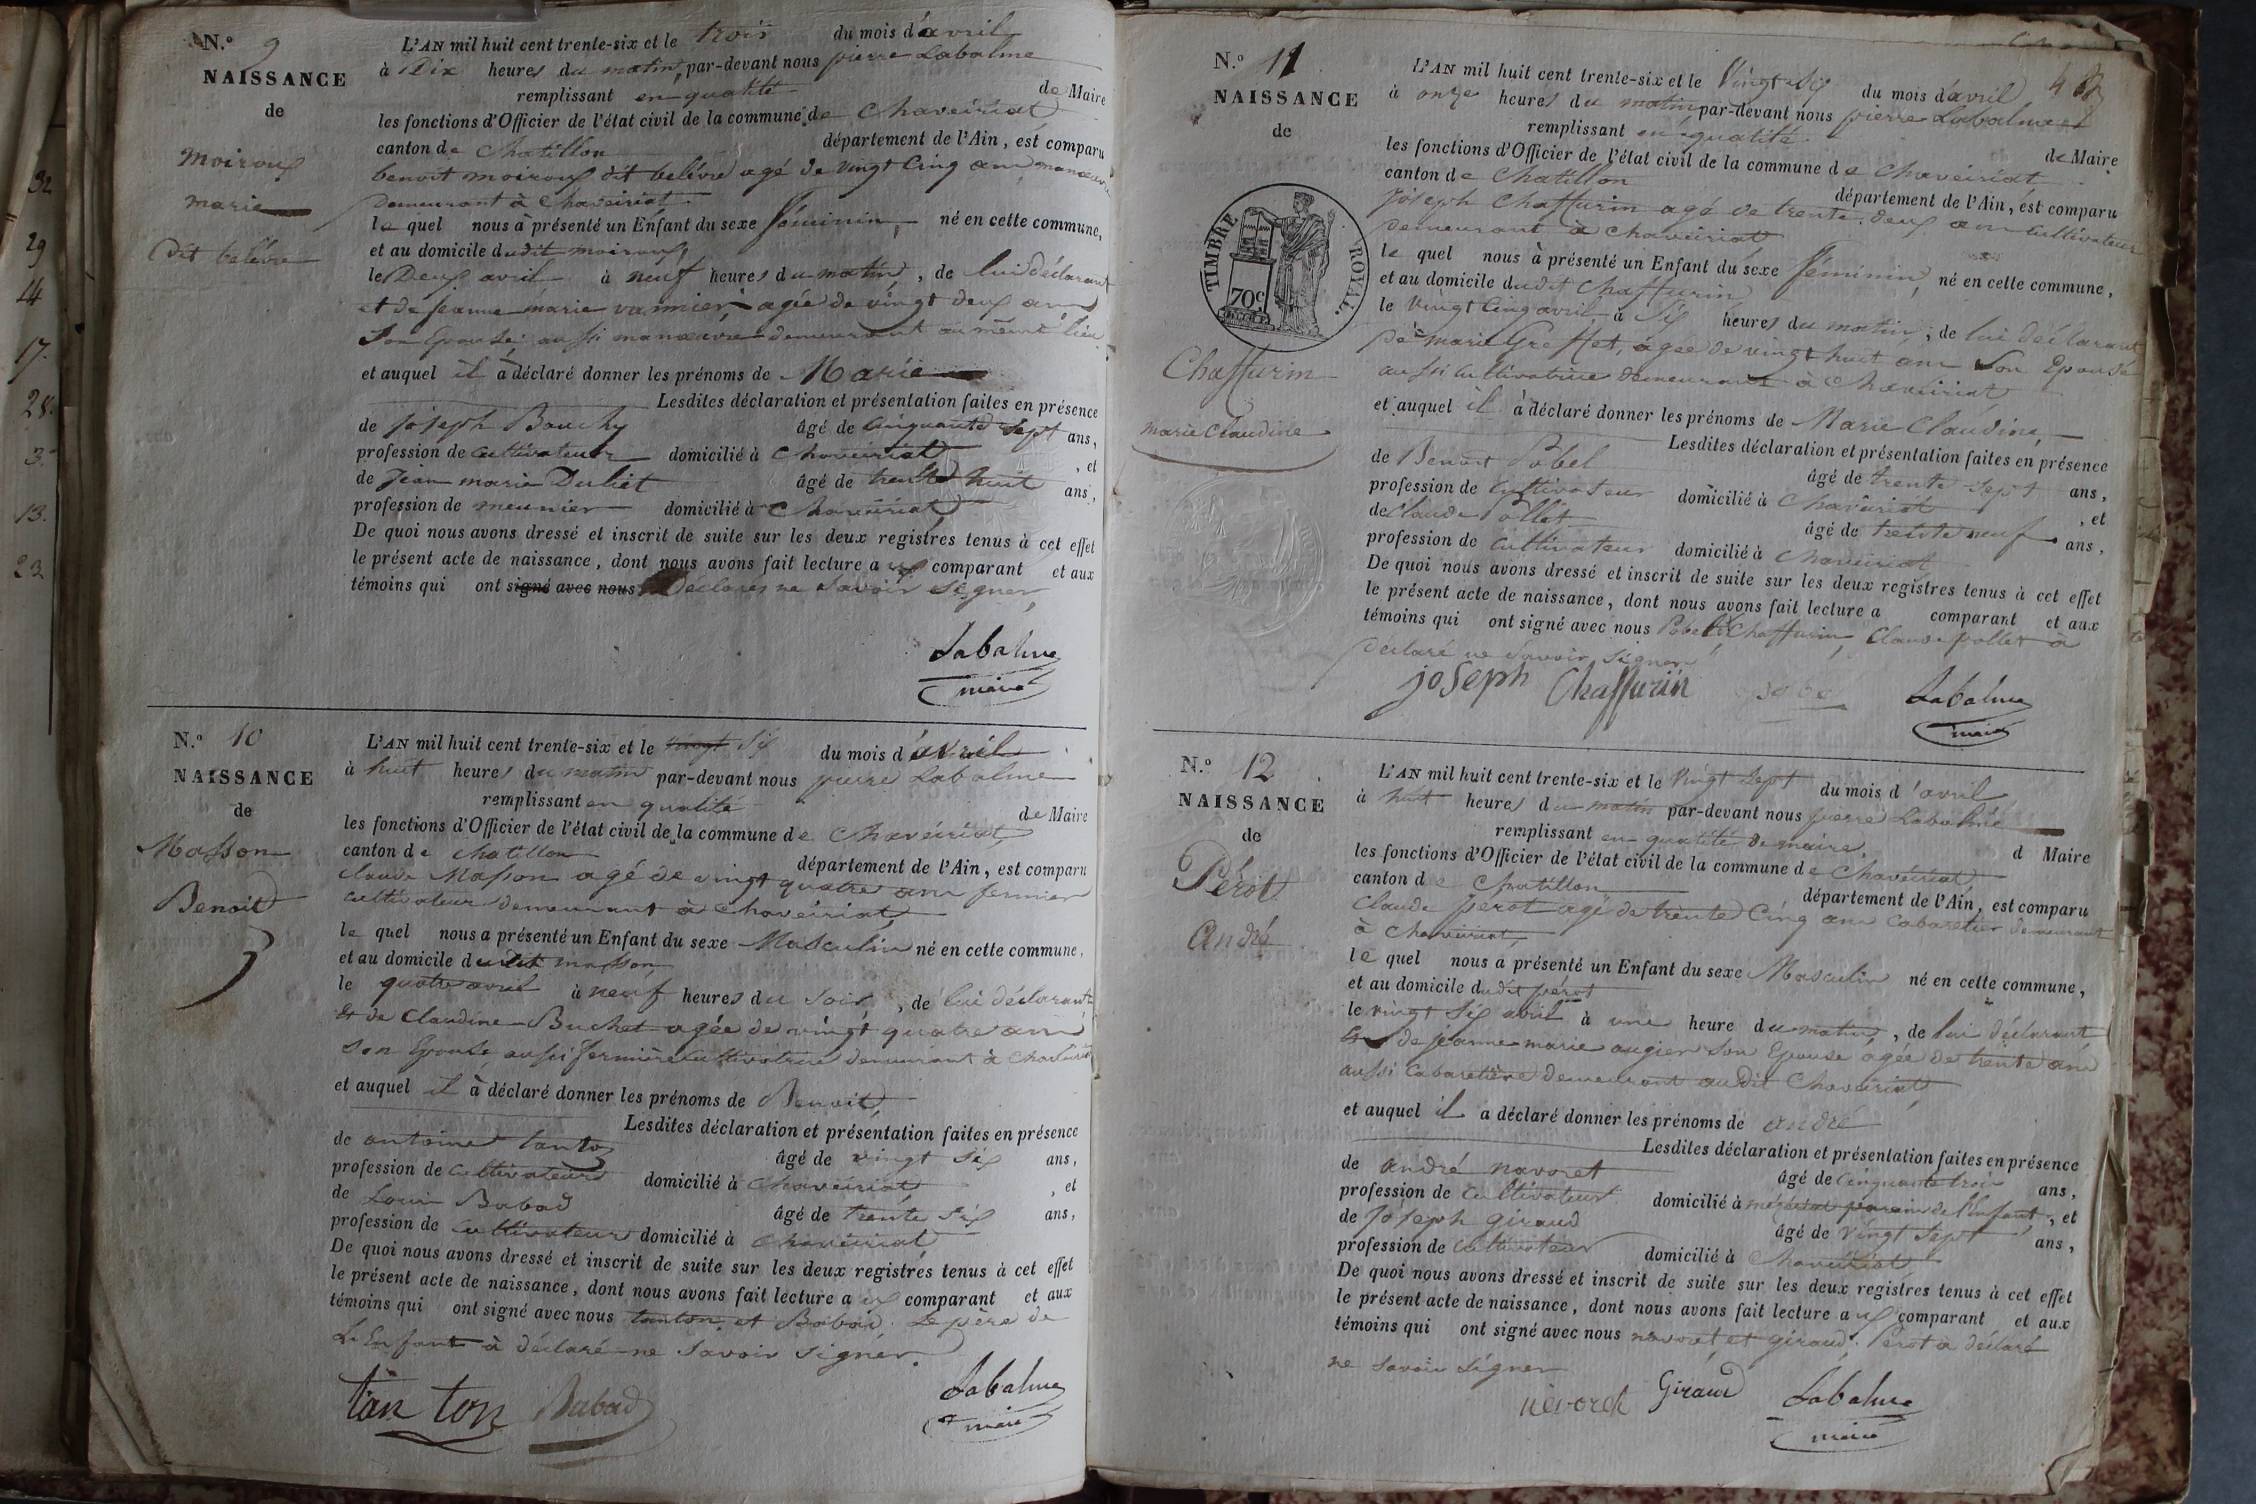 32
29
14
17.
28.
3.
13.
23
N.º 9
NAISSANCE
de
moiroux
marie
dit belévre
L'AN mil huit cent trente-six et le trois du mois d'avril
à Dix heures du matin, par-devant nous pierre Labalme
remplissant en qualité de Maire
les fonctions d'Officier de l'état civil de la commune de Chaveiriat
canton de Chatillon département de l'Ain, est comparu
benoit moiroux dit belévre agé de vingt Cinq ans manœuvre
demeurant à Chaveiriat
le quel nous à présenté un Enfant du sexe féminin, né en cette commune,
et au domicile dudit moiroux
le Deux avril à neuf heures du matin, de lui déclarant
et de jeanne marie vannier agée de vingt deux ans
Son Epouse aussi manœuvre demeurant au même lieu
et auquel il à déclaré donner les prénoms de Marie
Lesdites déclaration et présentation faites en présence
de joseph Bouchy âgé de Cinquante Sept ans,
profession de Cultivateur domicilié à Chaveiriat, et
de Jean marie Duliet âgé de trente huit ans,
profession de meunier domicilié à Chaveiriat
De quoi nous avons dressé et inscrit de suite sur les deux registres tenus à cet effet
le présent acte de naissance, dont nous avons fait lecture aux comparant et aux
témoins qui ont signé avec nous Déclarés ne Savoir Signer
Labalme
maire
N.º 10
NAISSANCE
de
Masson
Benoit
L'AN mil huit cent trente-six et le vingt Six du mois d'avril
à huit heures du matin par-devant nous pierre Labalme
remplissant en qualité de Maire
les fonctions d'Officier de l'état civil de la commune de Chaveiriat
canton de Chatillon département de l'Ain, est comparu
Claude Masson agé de vingt quatre ans fermier
cultivateur demeurant à Chaveiriat
le quel nous a présenté un Enfant du sexe Masculin né en cette commune,
et au domicile dudit masson
le quatre avril à neuf heures du Soir, de lui déclarant
et de Claudine Buchet agée de vingt quatre ans
Son Epouse aussi fermière cultivatrice demeurant à Chaveiriat
et auquel il à déclaré donner les prénoms de Benoit
Lesdites déclaration et présentation faites en présence
de antoine tanton âgé de vingt Six ans,
profession de Cultivateur domicilié à Chaveiriat, et
de Louis Babad âgé de trente Six ans,
profession de Cultivateur domicilié à Chaveiriat
De quoi nous avons dressé et inscrit de suite sur les deux registres tenus à cet effet
le présent acte de naissance, dont nous avons fait lecture aux comparant et aux
témoins qui ont signé avec nous tanton et Babad. Le père de
L'Enfant à déclaré ne Savoir Signer.
tan ton Babad Labalme
maire
N.º 11
NAISSANCE
de
TIMBRE ROYAL.
70c
Chaffurin
marie Claudine
L'AN mil huit cent trente-six et le Vingt Six du mois d'avril
à onze heures du matin par-devant nous pierre Labalme
remplissant en qualité de Maire
les fonctions d'Officier de l'état civil de la commune de Chaveiriat
canton de Chatillon département de l'Ain, est comparu
joseph Chaffurin agé de trente deux ans Cultivateur
demeurant à Chaveiriat
le quel nous à présenté un Enfant du sexe féminin, né en cette commune,
et au domicile dudit Chaffurin
le Vingt Cinq avril à Six heures du matin, de lui déclarant
de marie Greffet, âgée de vingt huit ans Son Epouse
aussi Cultivatrice demeurant à Chaveiriat
et auquel il à déclaré donner les prénoms de Marie Claudine
Lesdites déclaration et présentation faites en présence
de Benoit Pobel âgé de trente Sept ans,
profession de Cultivateur domicilié à Chaveiriat, et
de Claude Pollet âgé de trente neuf ans,
profession de Cultivateur domicilié à Chaveiriat
De quoi nous avons dressé et inscrit de suite sur les deux registres tenus à cet effet
le présent acte de naissance, dont nous avons fait lecture a comparant et aux
témoins qui ont signé avec nous Pobel et Chaffurin, Claude pollet à
déclaré ne Savoir Signer
joseph Chaffurin Labalme
maire
N.º 12
NAISSANCE
de
Pérot
André
L'AN mil huit cent trente-six et le Vingt Sept du mois d'avril
à huit heures du matin par-devant nous pierre Labalme
remplissant en qualité de maire. d Maire
les fonctions d'Officier de l'état civil de la commune de Chaveiriat
canton de Chatillon département de l'Ain, est comparu
Claude perot agé de trente Cinq ans Cabaretier demeurant
à Chaveiriat
le quel nous a présenté un Enfant du sexe Masculin né en cette commune,
et au domicile dudit pérot
le vingt Six avril à une heure du matin, de lui déclarant
et de jeanne marie augier Son Epouse âgée de trente ans
aussi Cabaretière demeurant audit Chaveiriat
et auquel il a déclaré donner les prénoms de andré
Lesdites déclaration et présentation faites en présence
de andré navoret âgé de Cinquante trois ans,
profession de Cultivateur domicilié à parain de l'Enfant, et
de Joseph giraud âgé de Vingt Sept ans,
profession de Cultivateur domicilié à Chaveiriat
De quoi nous avons dressé et inscrit de suite sur les deux registres tenus à cet effet
le présent acte de naissance, dont nous avons fait lecture aux comparant et aux
témoins qui ont signé avec nous navoret et giraud. Pérot à déclaré
ne Savoir Signer
Giraud Labalme
maire